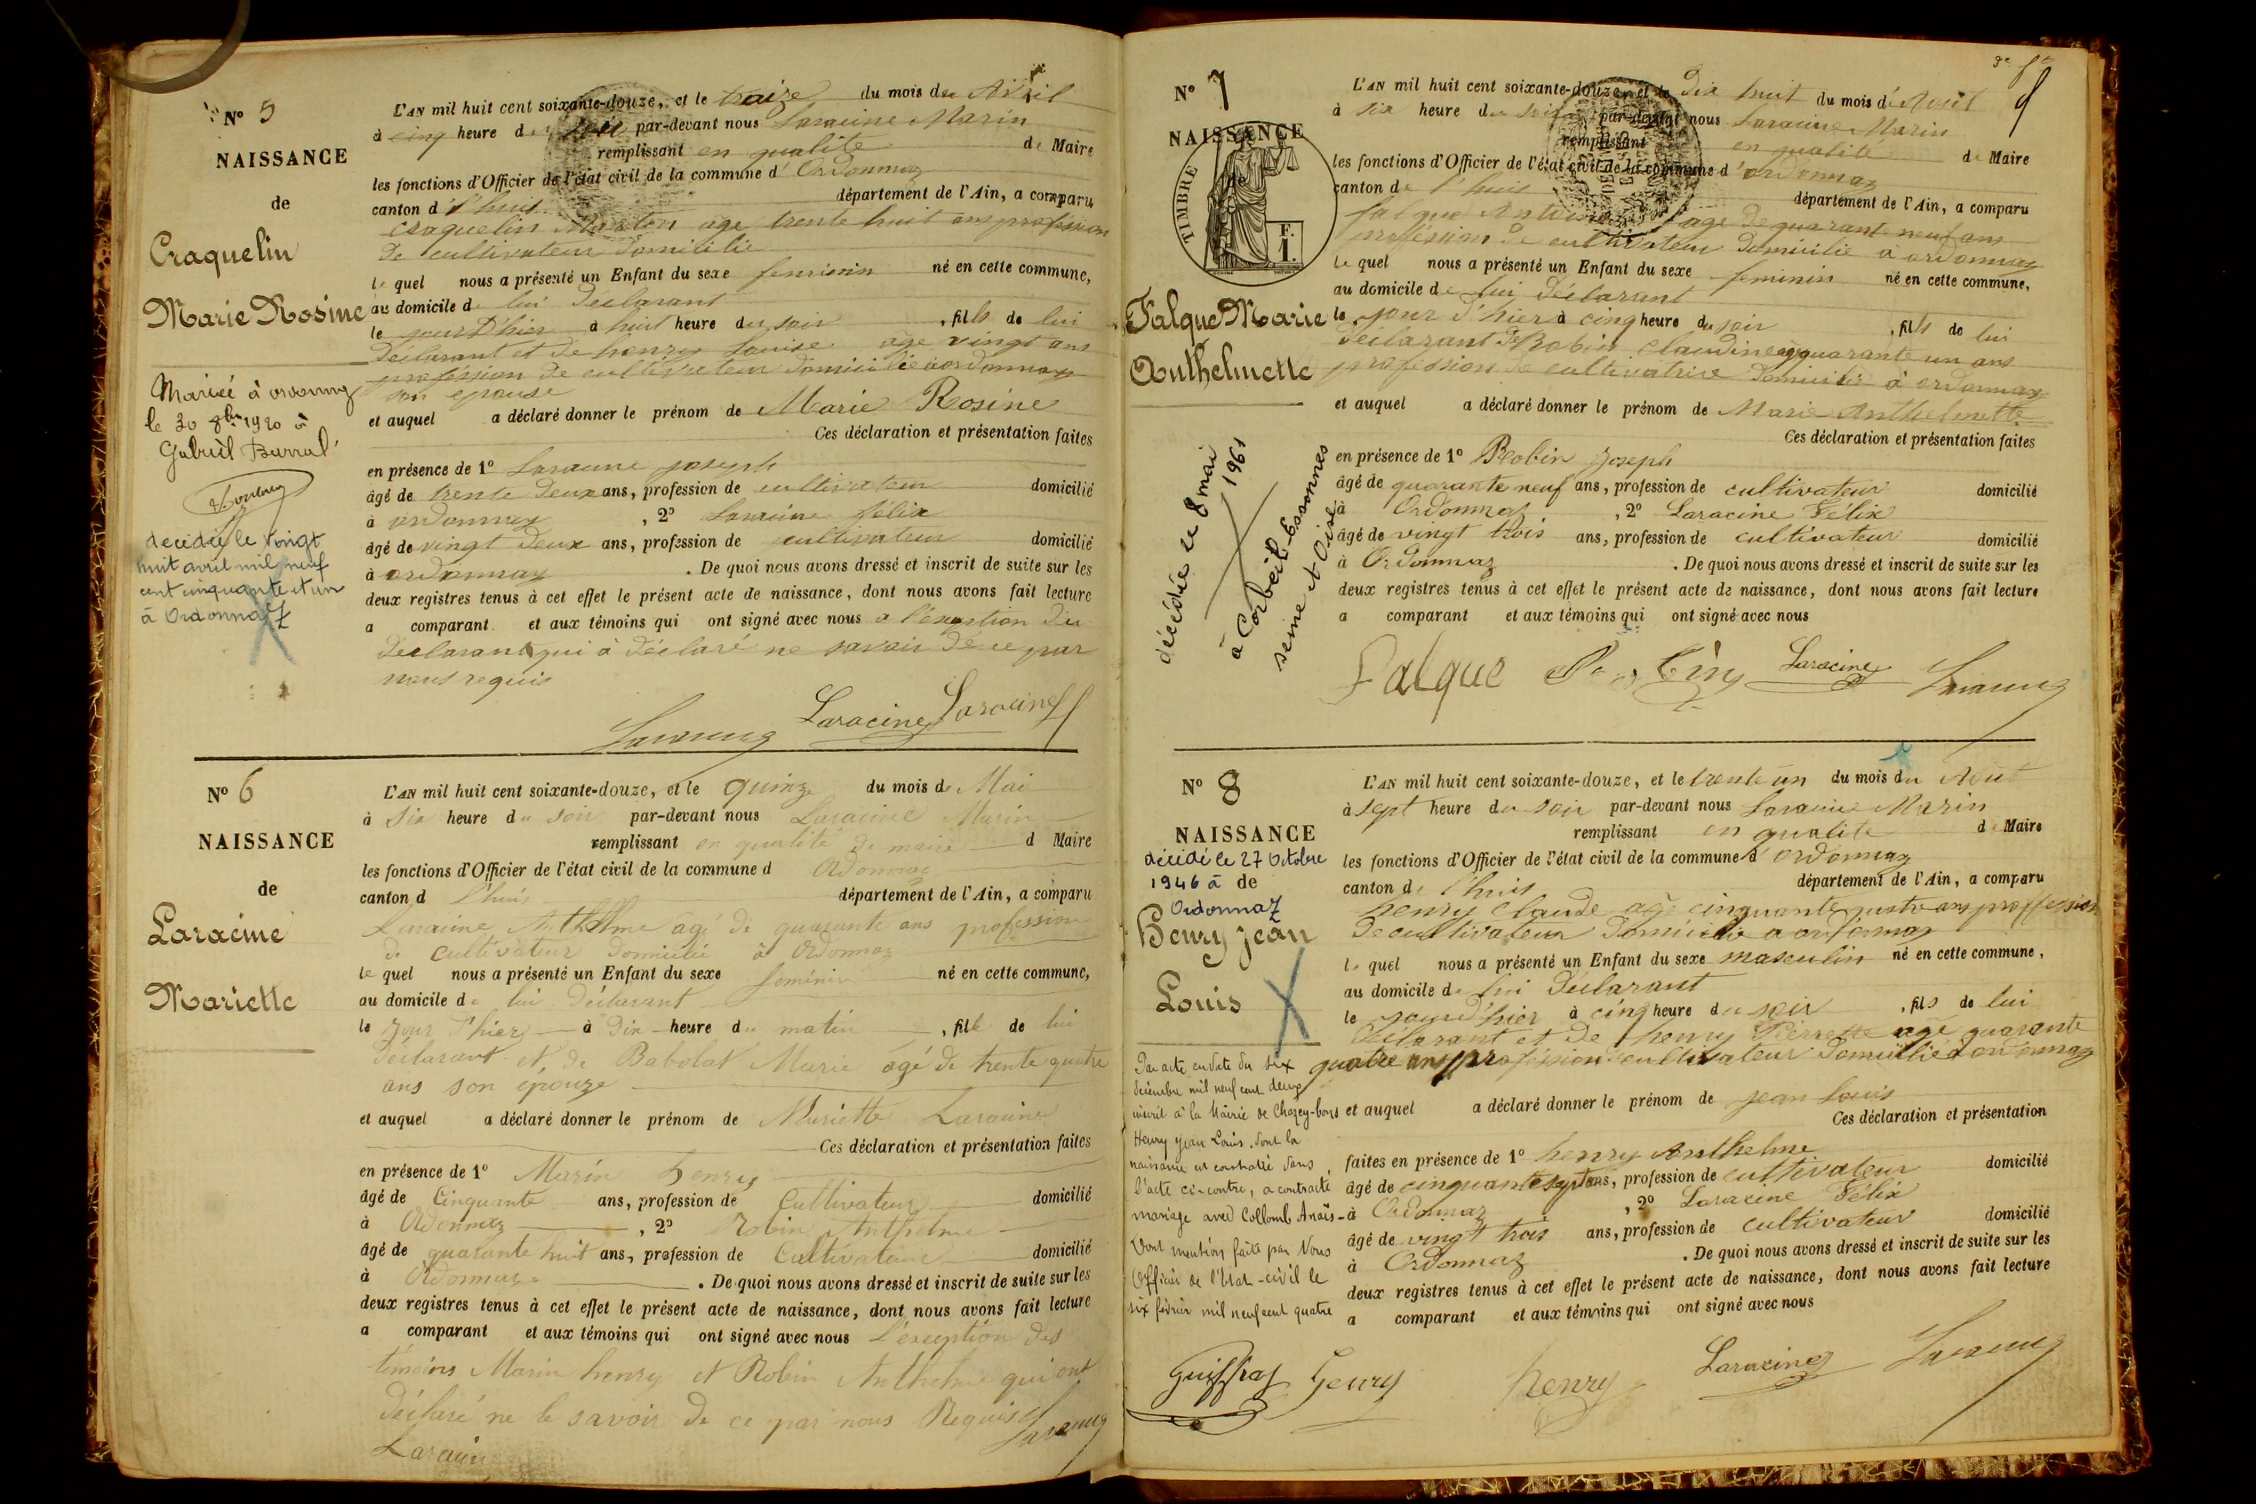 N° 5
NAISSANCE
de
Craquelin
Marie Rosine
Mariée à ordonnaz
le 30 8bre 1920 à
Gabriel Barral
decédée le vingt
huit avril mil neuf
cent cinquante et un
à Ordonnaz
L'AN mil huit cent soixante-douze, et le treize du mois de Avril
à cinq heure du soir par-devant nous Laracine Marin
remplissant en qualité de Maire
les fonctions d'Officier de l'état civil de la commune d'Ordonnaz
canton d l'huis département de l'Ain, a comparu
Craquelin age trente huit ans profession
de cultivateur domicilié
le quel nous a présenté un Enfant du sexe feminin né en cette commune,
au domicile de lui déclarant
le jour d'hier à huit heure du soir , fils de lui
déclarant et de henry Louise age vingt ans
profession de cultivateur domicilié a ordonnaz
son epouse
et auquel a déclaré donner le prénom de Marie Rosine
Ces déclaration et présentation faites
en présence de 1° Laracine joseph
âgé de trente deux ans, profession de cultivateur domicilié
à ordonnaz , 2° Laracine félix
âgé de vingt deux ans, profession de cultivateur domicilié
à ordonnaz . De quoi nous avons dressé et inscrit de suite sur les
deux registres tenus à cet effet le présent acte de naissance, dont nous avons fait lecture
a comparant et aux témoins qui ont signé avec nous a l'exeption du
déclarant qui à déclaré ne savoir de ce par
nous requis
Laracine Laracine
N° 6
NAISSANCE
de
Laracine
Mariette
L'AN mil huit cent soixante-douze, et le quinze du mois de Mai
à Six heure du soir par-devant nous Laracine Marin
remplissant en qualité de maire d Maire
les fonctions d'Officier de l'état civil de la commune d Ordonnaz
canton d l'huis département de l'Ain, a comparu
Laracine Anthelme agé de quarante ans profession
de cultivateur domicilié à Ordonnaz
le quel nous a présenté un Enfant du sexe féminin né en cette commune,
au domicile de lui déclarant
le jour d'hier à Dix heure du matin , fils de lui
déclarant et de Babolat Marie agé de trente quatre
ans son epouze
et auquel a déclaré donner le prénom de Mariette Laracine
Ces déclaration et présentation faites
en présence de 1° Marin henry
âgé de Cinquante ans, profession de Cultivateur domicilié
à Ordonnaz , 2° Robin Anthelme
âgé de quarante huit ans, profession de Cultivateur domicilié
à Ordonnaz . De quoi nous avons dressé et inscrit de suite sur les
deux registres tenus à cet effet le présent acte de naissance, dont nous avons fait lecture
a comparant et aux témoins qui ont signé avec nous l'exeption des
témoins Marin henry et Robin Anthelme qui ont
déclaré ne le savoir de ce par nous Requis
Laracine
N° 7
NAISSANCE
de
TIMBRE
F.
1.
Falque Marie
Anthelmette
décédée le 8 mai 1961
à Corbeil-Essonnes
seine et Oise
L'AN mil huit cent soixante-douze, et le dix huit du mois d'Avril
à six heure du soir par-devant nous Laracine Marin
remplissant en qualité de Maire
les fonctions d'Officier de l'état civil de la commune d'ordonnaz
canton de l'huis département de l'Ain, a comparu
falque Antoine age de quarant neuf ans
proféssion de cultivateur domicilié à ordonnaz
le quel nous a présenté un Enfant du sexe feminin né en cette commune,
au domicile de lui déclarant
le jour d'hier à cinq heure du soir , fils de lui
déclarant Robin Claudine agé quarante un ans
profession de cultivatrice domicilié à ordonnaz
et auquel a déclaré donner le prénom de Marie Anthelmette
Ces déclaration et présentation faites
en présence de 1° Robin Joseph
âgé de quarante neuf ans, profession de cultivateur domicilié
à Ordonnaz , 2° Laracine Félix
âgé de vingt trois ans, profession de cultivateur domicilié
à Ordonnaz . De quoi nous avons dressé et inscrit de suite sur les
deux registres tenus à cet effet le présent acte de naissance, dont nous avons fait lecture
a comparant et aux témoins qui ont signé avec nous
Falque Laracine
N° 8
NAISSANCE
décédé le 27 Octobre
1946 à de
Ordonnaz
Henry Jean
Louis
Par acte en date du six
décembre mil neuf cent deux
inscrit à la Mairie de Chazey-bons
Henry Jean Louis, dont la
naissance est constatée dans
l'acte ci-contre, a contracté
mariage avec Collomb Anaïs
Dont mention faite par Nous
Officier de l'Etat-civil le
six février mil neuf cent quatre
L'AN mil huit cent soixante-douze, et le trente un du mois du Aout
à sept heure du soir par-devant nous Laracine Marin
remplissant en qualité de Maire
les fonctions d'Officier de l'état civil de la commune d'ordonnaz
canton de l'huis département de l'Ain, a comparu
henry Claude age cinquante quatre ans proffession
de cultivateur domicilié a ordonnaz
le quel nous a présenté un Enfant du sexe masculin né en cette commune,
au domicile de lui déclarant
le jour d'hier à cinq heure du soir , fils de lui
déclarant et de henry Pierrette agé quarante
quatre ans proféssion cultivateur domicilié a ordonnaz
et auquel a déclaré donner le prénom de jean Louis
Ces déclaration et présentation
faites en présence de 1° henry Anthelme
âgé de cinquante sept ans, profession de cultivateur domicilié
à Ordonnaz , 2° Laracine Félix
âgé de vingt trois ans, profession de cultivateur domicilié
à Ordonnaz . De quoi nous avons dressé et inscrit de suite sur les
deux registres tenus à cet effet le présent acte de naissance, dont nous avons fait lecture
a comparant et aux témoins qui ont signé avec nous
henry henry Laracine